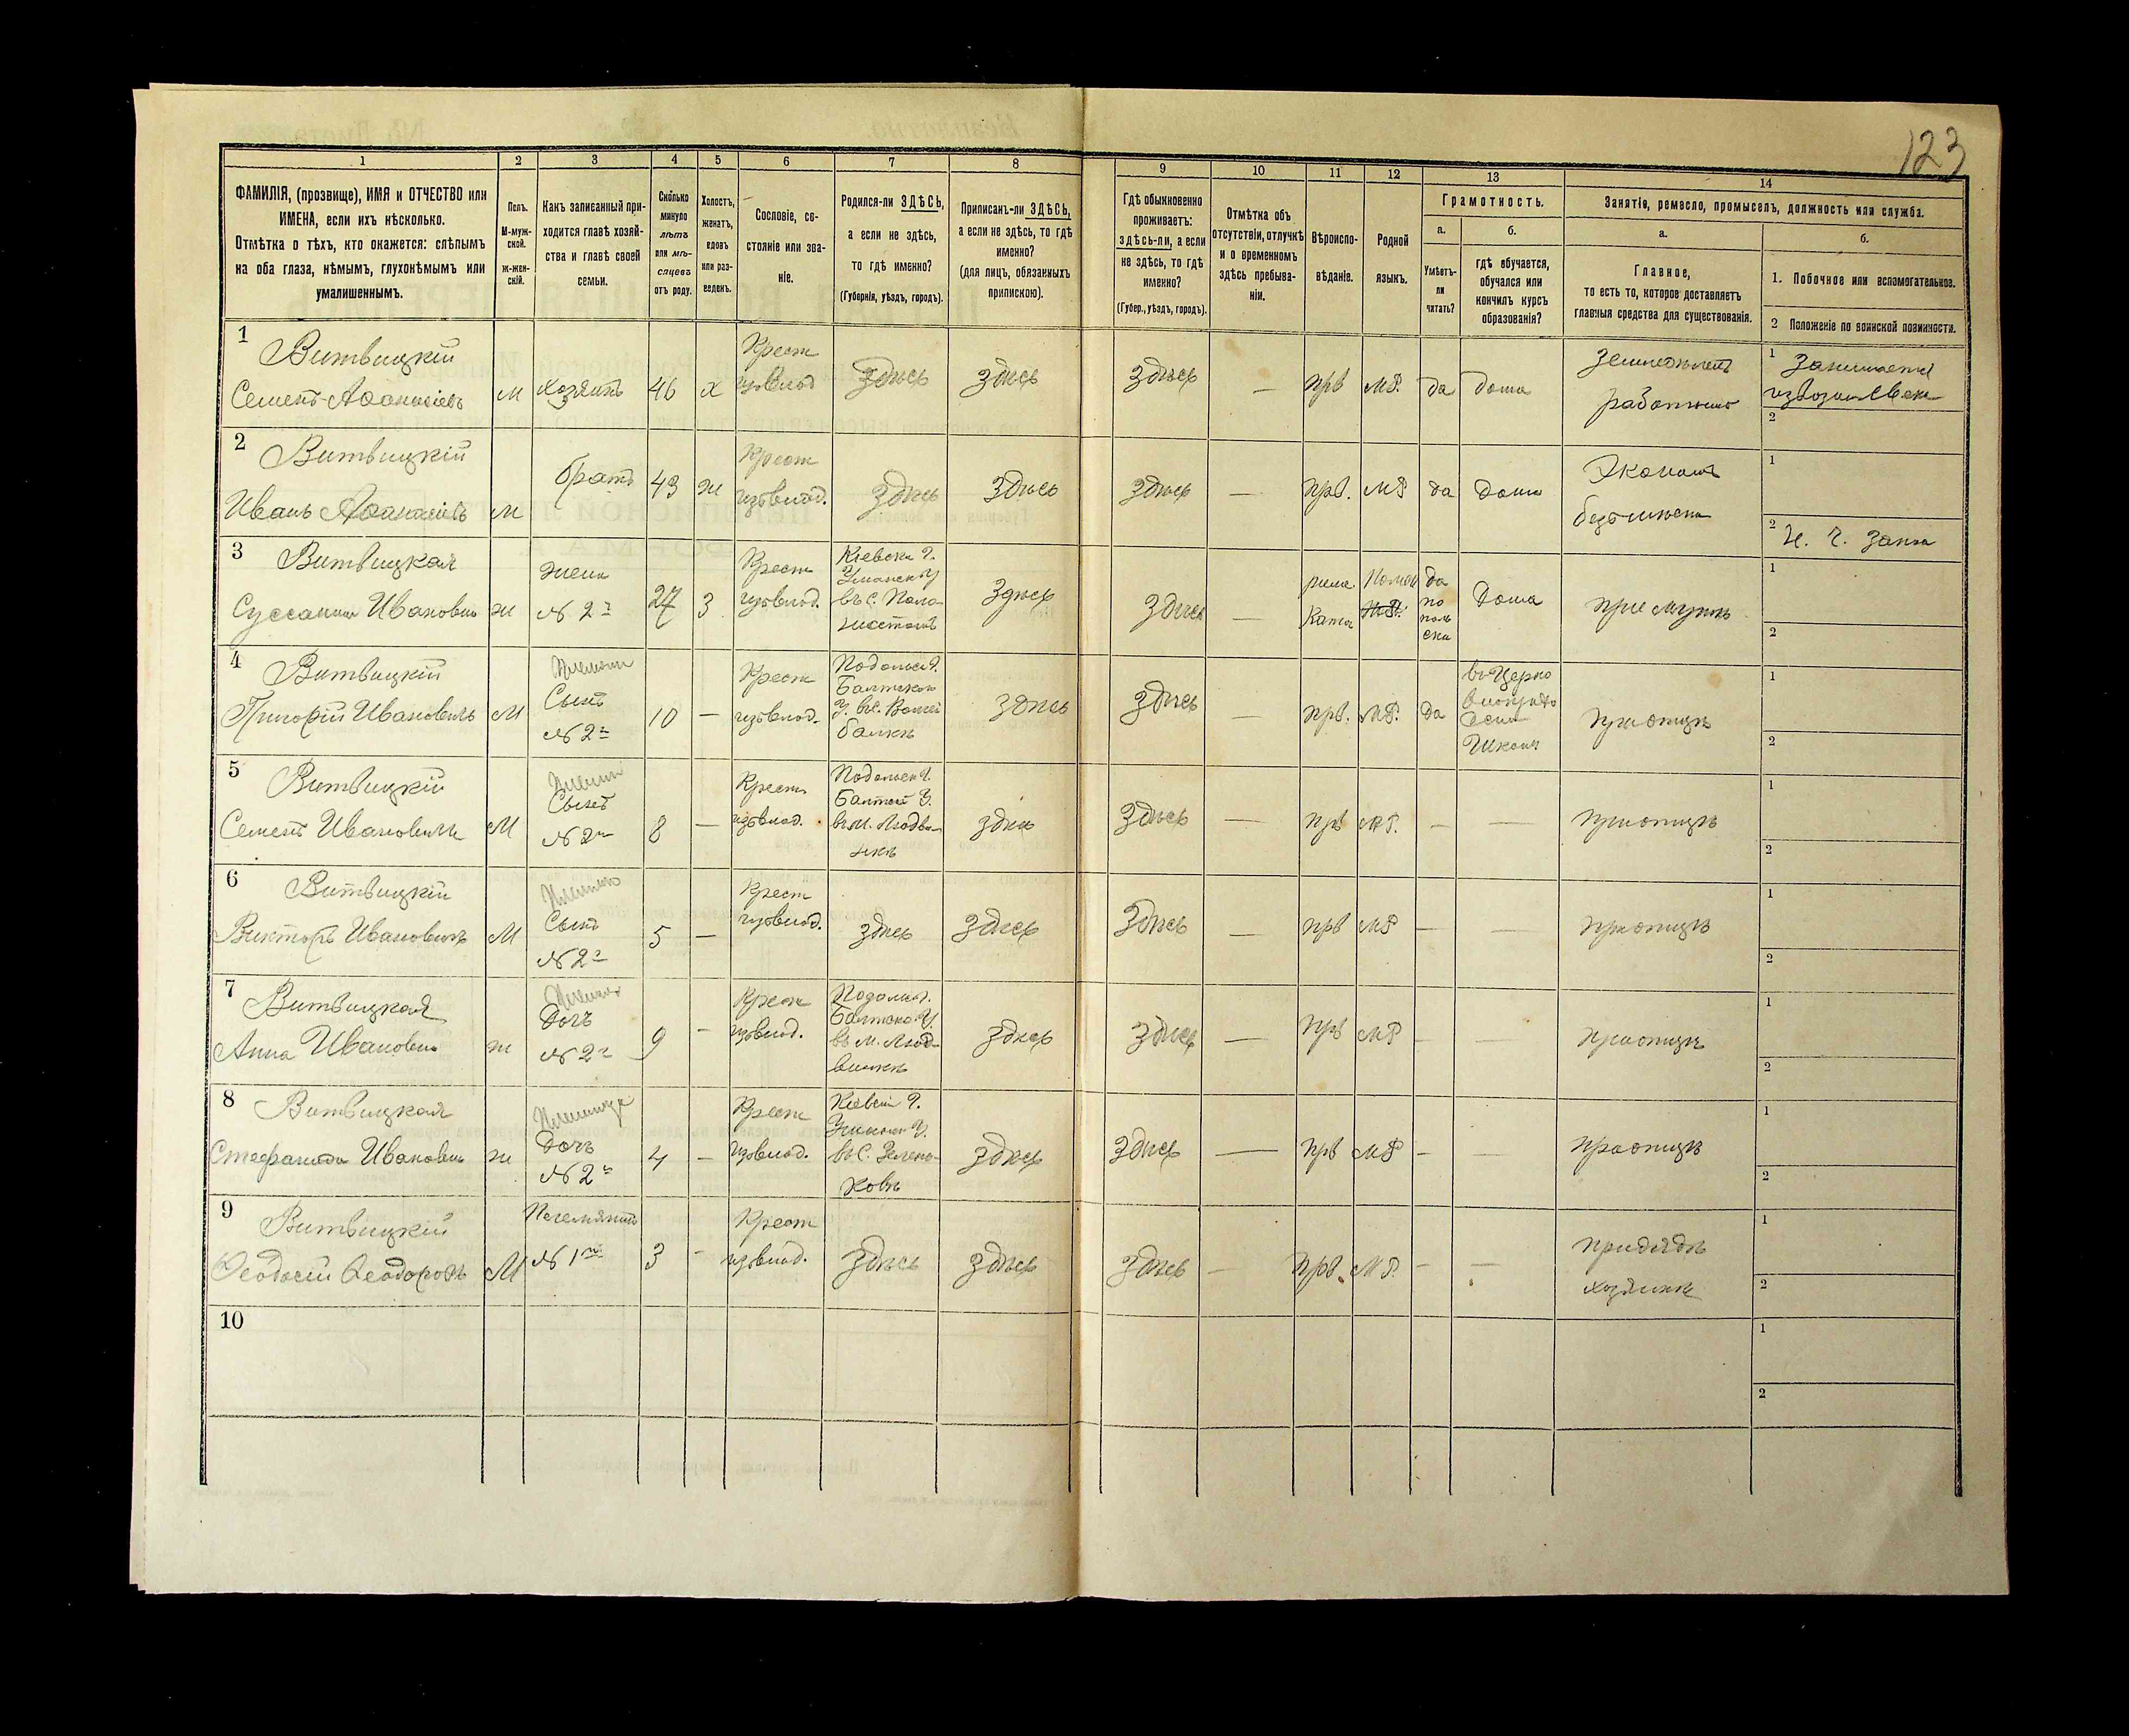 123
1
2
3
4
5
6
7
8
9
10
11
12
13
14
ФАМИЛІЯ, (прозвище), ИМЯ и ОТЧЕСТВО или
ИМЕНА, если ихъ нѣсколько.
Отмѣтка о тѣхъ, кто окажется: слѣпымъ
на оба глаза, нѣмымъ, глухонѣмымъ или
умалишеннымъ.
Полъ.
М-муж-
ской.
ж-жен-
скій.
Какъ записанный при-
ходится главѣ хозяй-
ства и главѣ своей
семьи.
Сколько
минуло
лѣтъ
или мѣ-
сяцевъ
отъ роду.
Холостъ,
женатъ,
вдовъ
или раз-
веденъ.
Сословіе, со-
стояніе или зва-
ніе.
Родился-ли ЗДѢСЬ,
а если не здѣсь,
то гдѣ именно?
(Губернія, уѣздъ, городъ).
Приписанъ-ли ЗДѢСЬ,
а если не здѣсь, то гдѣ
именно?
(для лицъ, обязанныхъ
припискою).
Гдѣ обыкновенно
проживаетъ:
здѣсь-ли, а если
не здѣсь, то гдѣ
именно?
(Губер., уѣздъ, городъ).
Отмѣтка объ
отсутствіи, отлучкѣ
и о временномъ
здѣсь пребыва-
ніи.
Вѣроиспо-
вѣданіе.
Родной
языкъ.
Грамотность.
а.
Умѣетъ-
ли
читать?
б.
гдѣ обучается,
обучался или
кончилъ курсъ
образованія?
Занятіе, ремесло, промыселъ, должность или служба.
а.
Главное,
то есть то, которое доставляетъ
главныя средства для существованія.
б.
1. Побочное или вспомогательное.
2 Положеніе по воинской повинности.
1
Витвицкій
Семенъ Аѳанасіевъ
М
Хозяинъ
46
х
Крест
изъ влад
Здѣсь
Здѣсь
Здѣсь
—
прв
МР.
да
дома
работникъ
1 Занимается
2
2
Витвицкій
Иванъ Аѳанасіевъ
М
братъ
43
ж
Крест
изъ влад.
Здѣсь
Здѣсь
Здѣсь
—
прв.
МР
да
дома
Экономъ
1
2
3
Витвицкая
Суссанна Ивановна
ж
жена
№ 2го
27
З
Крест
изъ влад.
Кіевск Г.
Уманск У
въ С.
Здѣсь
Здѣсь
—
римс.
Като
да
по
поль
ски
Дома
при мужѣ
1
2
4
Витвицкій
Григорій Ивановичъ
М
Сынъ
№ 2го
10
—
Крест
изъ влад.
Подольск Г.
Балтскаго
балкѣ
Здѣсь
Здѣсь
—
прв.
МР.
да
при отцѣ
1
2
5
Витвицкій
Семенъ Ивановичъ
М
Сынъ
№ 2го
8
—
Крест
изъ влад.
Подольск Г.
Балтск У.
Здѣсь
Здѣсь
—
прв
МР.
—
—
при отцѣ
1
2
6
Витвицкій
Викторъ Ивановичъ
М
Сынъ
№ 2го
5
—
Крест
изъ влад.
Здѣсь
Здѣсь
Здѣсь
—
прв
МР
—
—
при отцѣ
1
2
7
Витвицкая
Анна Ивановна
ж
Дочь
№ 2го
9
—
Крест
изъ влад.
Подольск Г.
Балтско У.
Здѣсь
Здѣсь
—
прв
МР
—
—
при отцѣ
1
2
8
Витвицкая
Стефанида Ивановна
ж
Дочь
№ 2го
4
—
Крест
изъ влад.
Кіевск Г.
Здѣсь
Здѣсь
—
прв
МР
—
—
при отцѣ
1
2
9
Витвицкій
Ѳеодосій Ѳеодоровъ
М
Племянникъ
№ 1го
3
—
Крест
изъ влад.
Здѣсь
Здѣсь
Здѣсь
—
прв.
МР.
—
—
при дядѣ
хозяинѣ
1
2
10
1
2